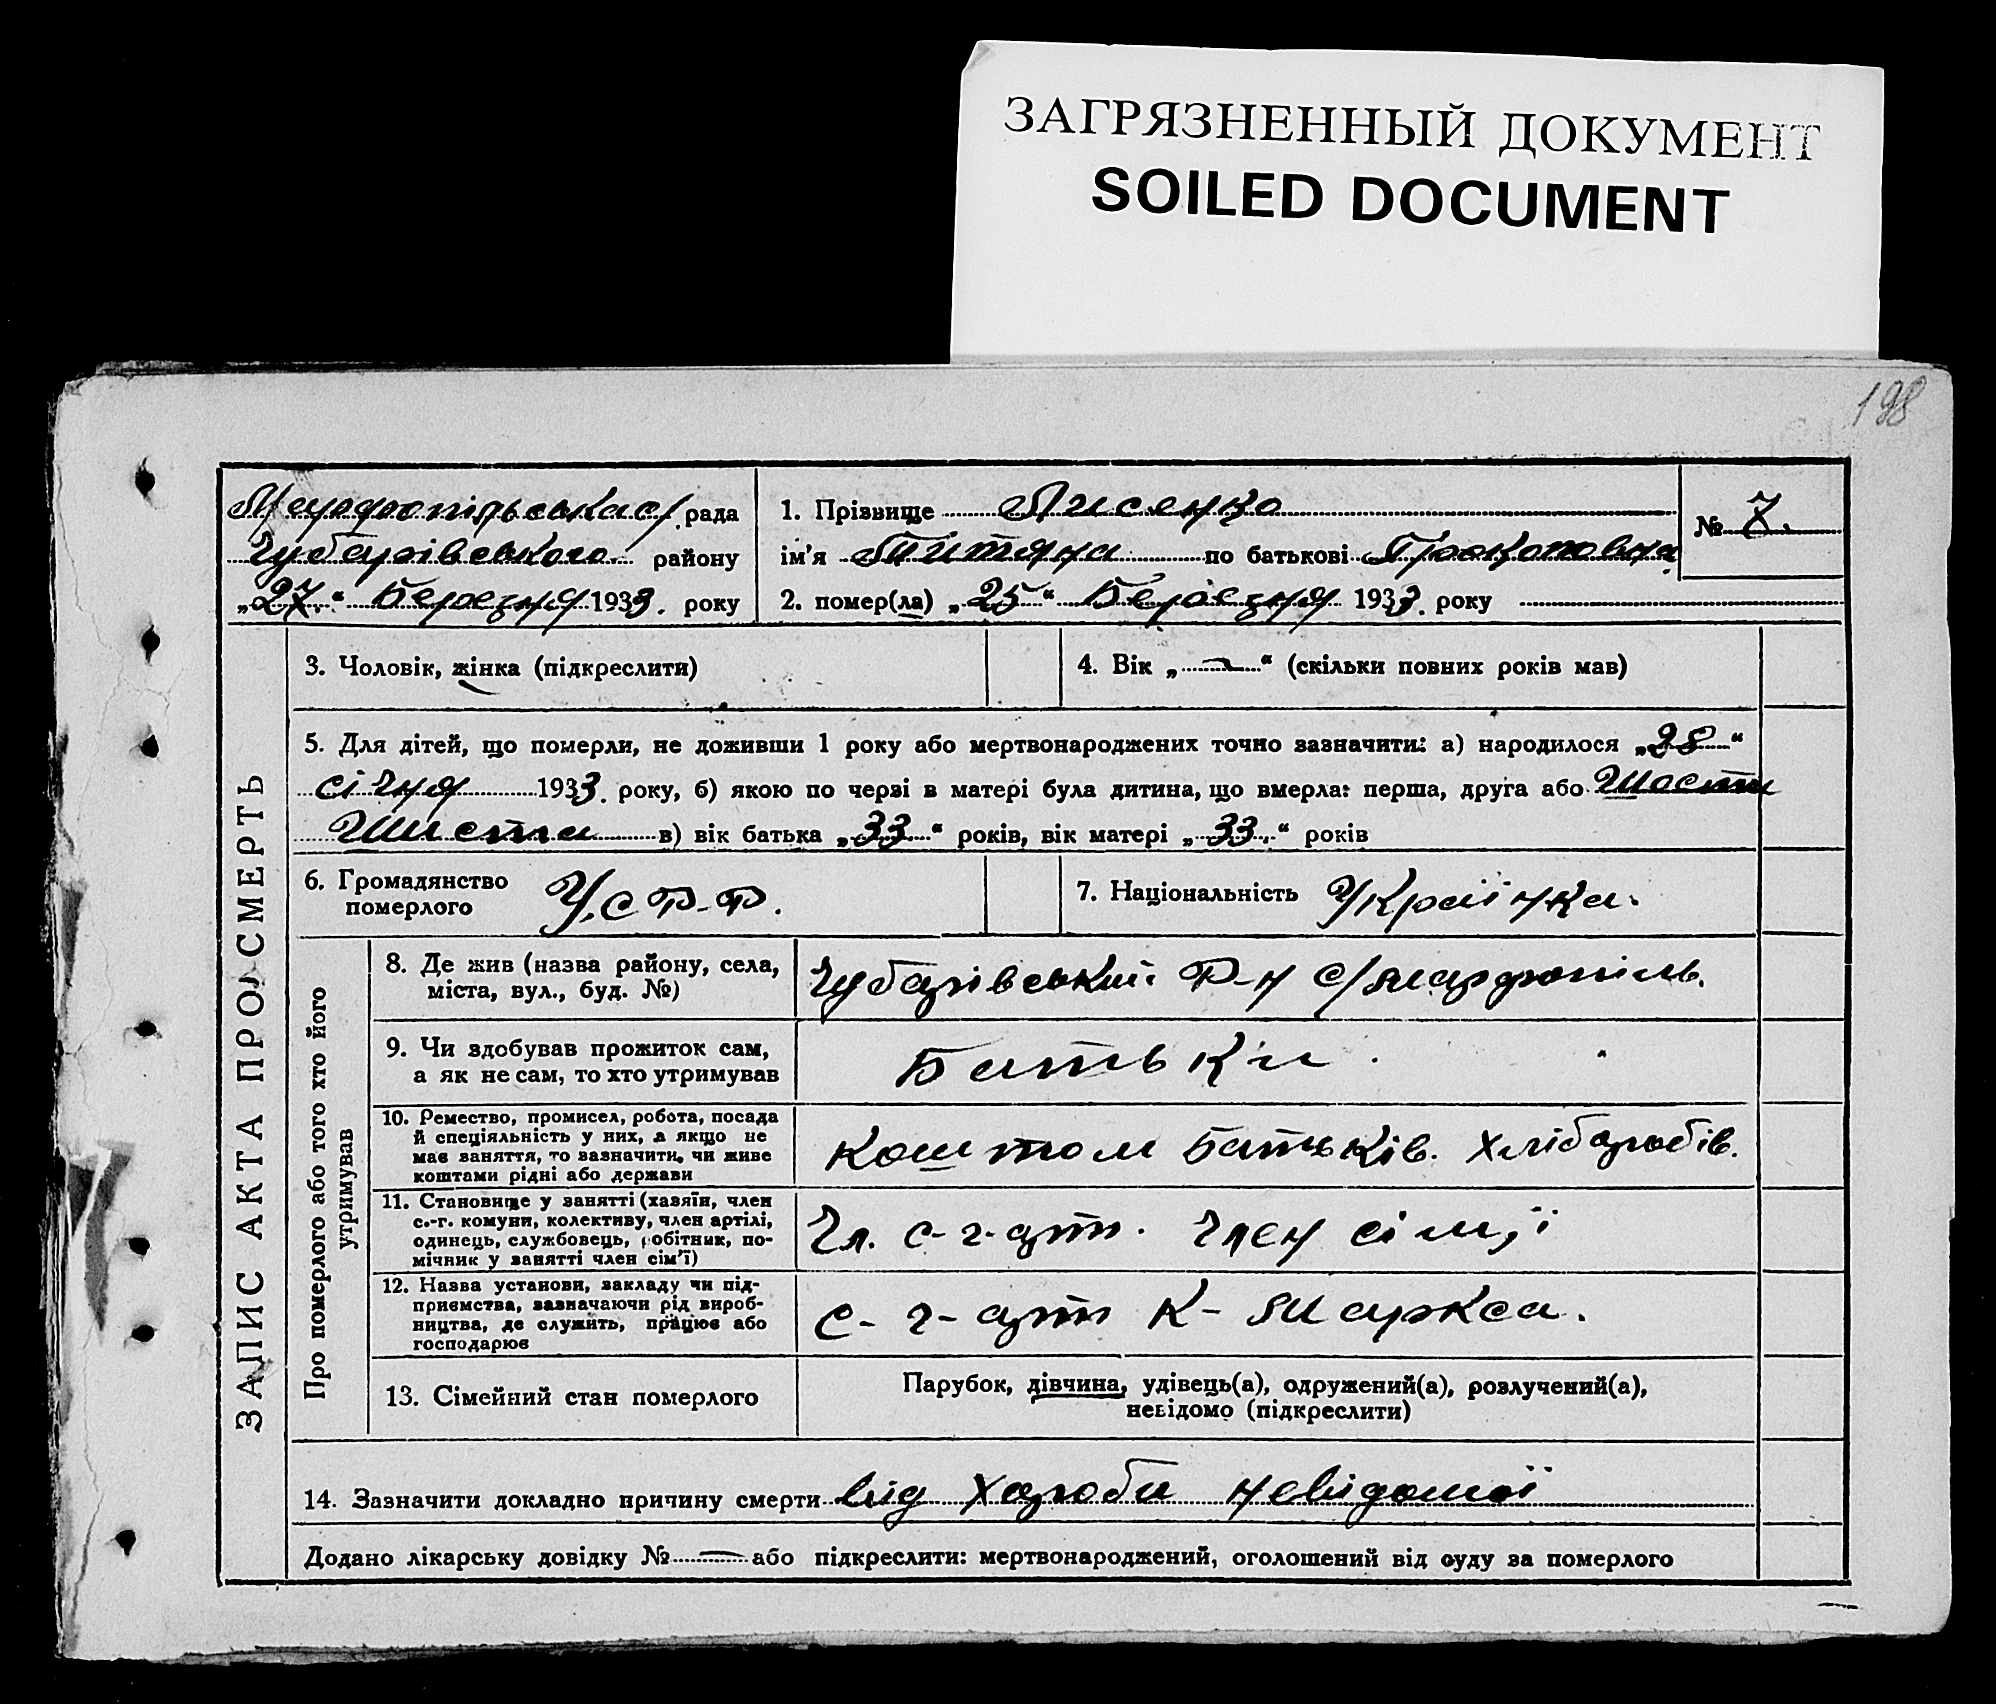 ЗАГРЯЗНЕННЫЙ ДОКУМЕНТ
SOILED DOCUMENT
198
Марфопільська с/рада
Чубарівського району
„27.“ Березня 1933. року
1. Прізвище Лисенко
ім'я Титяна по батькові Прокоповна
2. помер(ла) „25“ Березня 1933. року
№ 7.
ЗАПИС АКТА ПРО СМЕРТЬ
3. Чоловік, жінка (підкреслити)
4. Вік „—“ (скільки повних років мав)
5. Для дітей, що померли, не доживши 1 року або мертвонароджених точно зазначити: а) народилося „28“
січня 1933. року, б) якою по черзі в матері була дитина, що вмерла: перша, друга або Шоста
Шиста в) вік батька „33“ років, вік матері „33.“ років
6. Громадянство
померлого
У.С.Р.Р.
7. Національність Українка.
Про померлого або того хто його
утримував
8. Де жив (назва району, села,
міста, вул., буд. №)
Чубарівський Р-н с/Марфопіль.
9. Чи здобував прожиток сам,
а як не сам, то хто утримував
Батьки.
10. Ремество, промисел, робота, посада
й спеціяльність у них, а якщо не
мав заняття, то зазначити, чи живе
коштами рідні або держави
коштом Батьків. Хліборобів.
11. Становище у занятті (хазяїн, член
с.-г. комуни, колективу, член артілі,
одинець, службовець, робітник, по-
мічник у занятті член сім'ї)
Чл. с-г-арт. Член сім,ї
12. Назва установи, закладу чи під-
приємства, зазначаючи рід вироб-
ництва, де служить, працює або
господарює
с-г-арт К-Маркса.
13. Сімейний стан померлого
Парубок, дівчина, удівець(а), одружений(а), розлучений(а),
невідомо (підкреслити)
14. Зазначити докладно причину смерти від хороби невідомої
Додано лікарську довідку № — або підкреслити: мертвонароджений, оголошений від суду за померлого